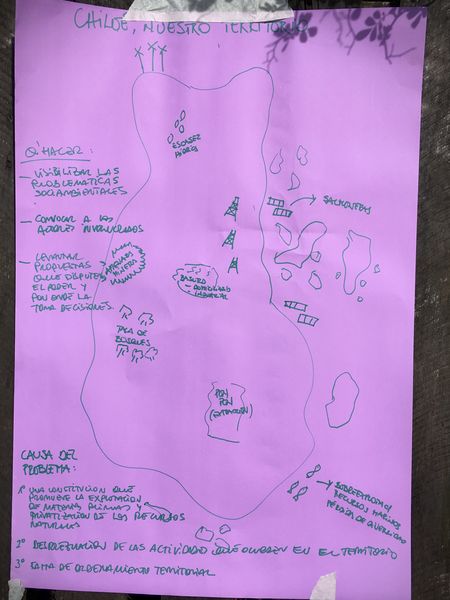 CHILOE, NUESTRO TERRITORIO
ESCASEZ
HIDRICA
Q' HACER:
- VISIBILIZAR LAS
PROBLEMATICAS
SOCIAMBIENTALES
- CONVOCAR A LOS
ACTORES INVOLUCRADOS
- LEVANTAR
PROPUESTAS
QUE DISPUTEN
EL PODER Y
PON ENDE LA
TOMA DE DECISIONES.
SALMONERAS
MINERO
BASURA
- DOMICILIARIA
INDUSTRIAL
TALA DE
BOSQUES
PON
PON
(EXTRACCIÓN)
CAUSA DEL
PROBLEMA:
1° UNA CONSTITUCION QUE
PROMUEVE LA EXPLOTACION
DE MATERIAS PRIMAS Y
PRIVATIZACIÓN DE LOS RECURSOS
NATURALES
SOBREEXPLOTACION
RECURSOS MARINOS
PÉRDIDA DE
2° DESREGULACIÓN DE LAS ACTIVIDADES QUE OCURREN EN EL TERRITORIO
3° FALTA DE ORDENAMIENTO TERRITORIAL